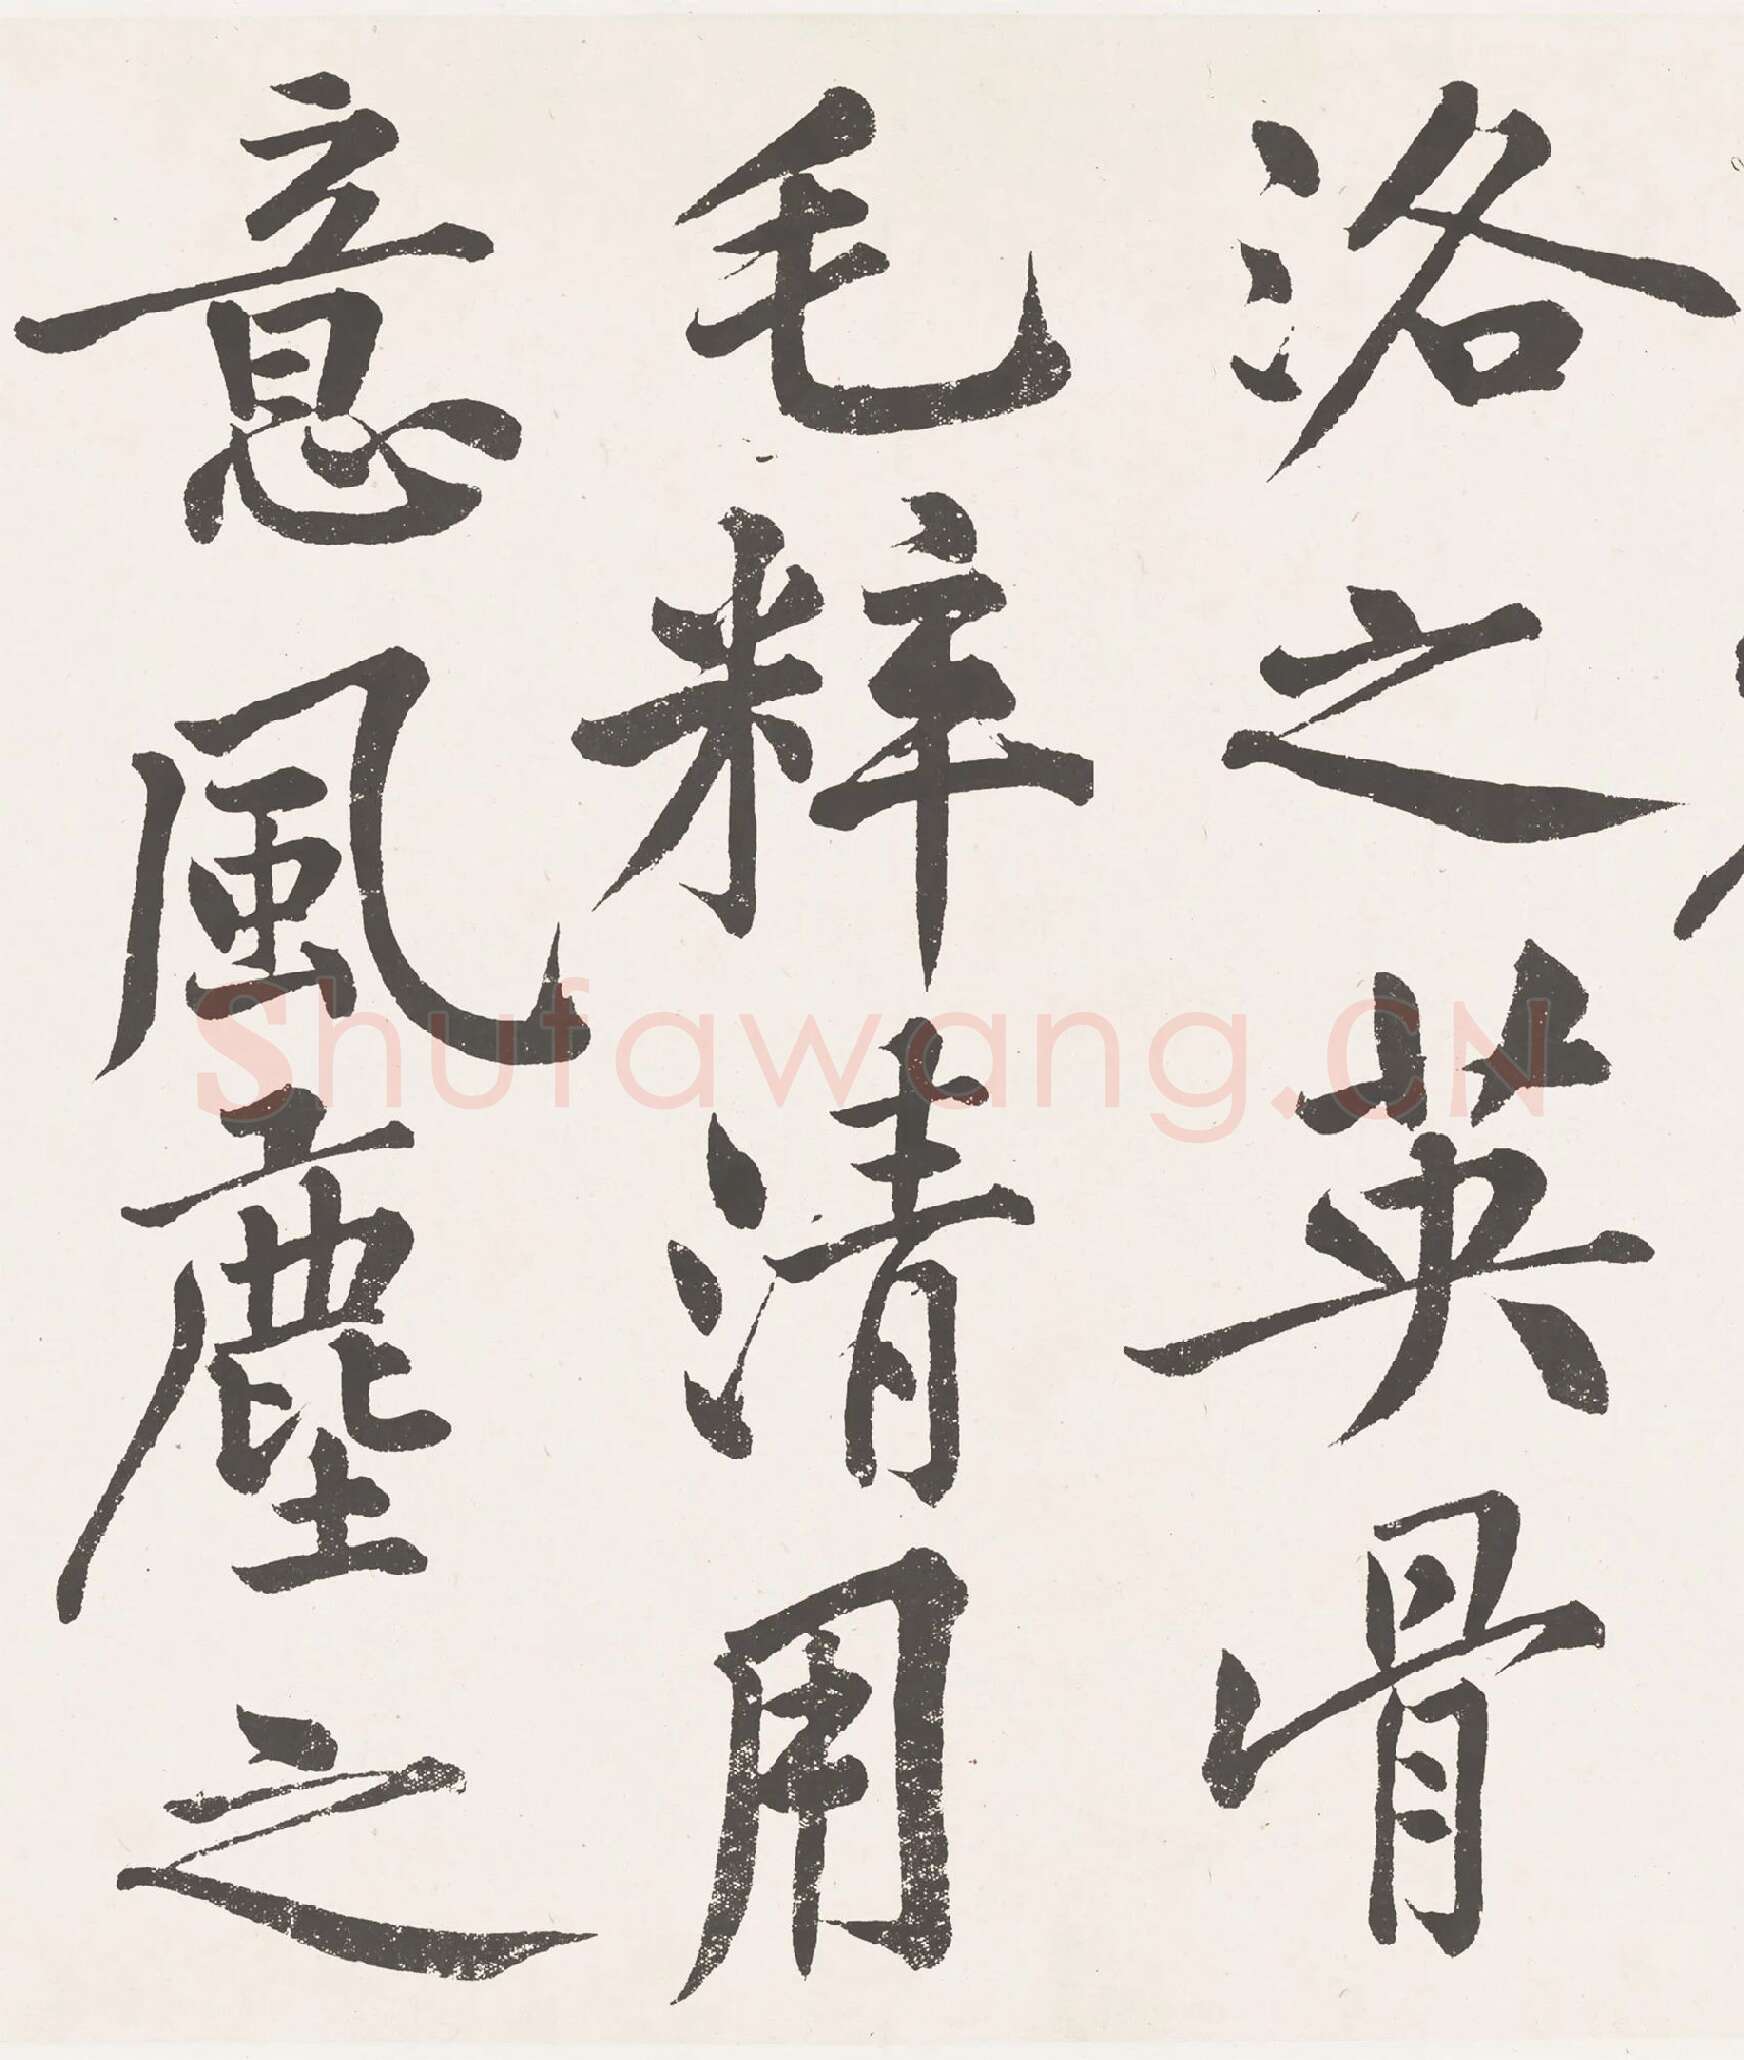 洛之英骨
毛粹清用
意風塵之
Shufawang.CN